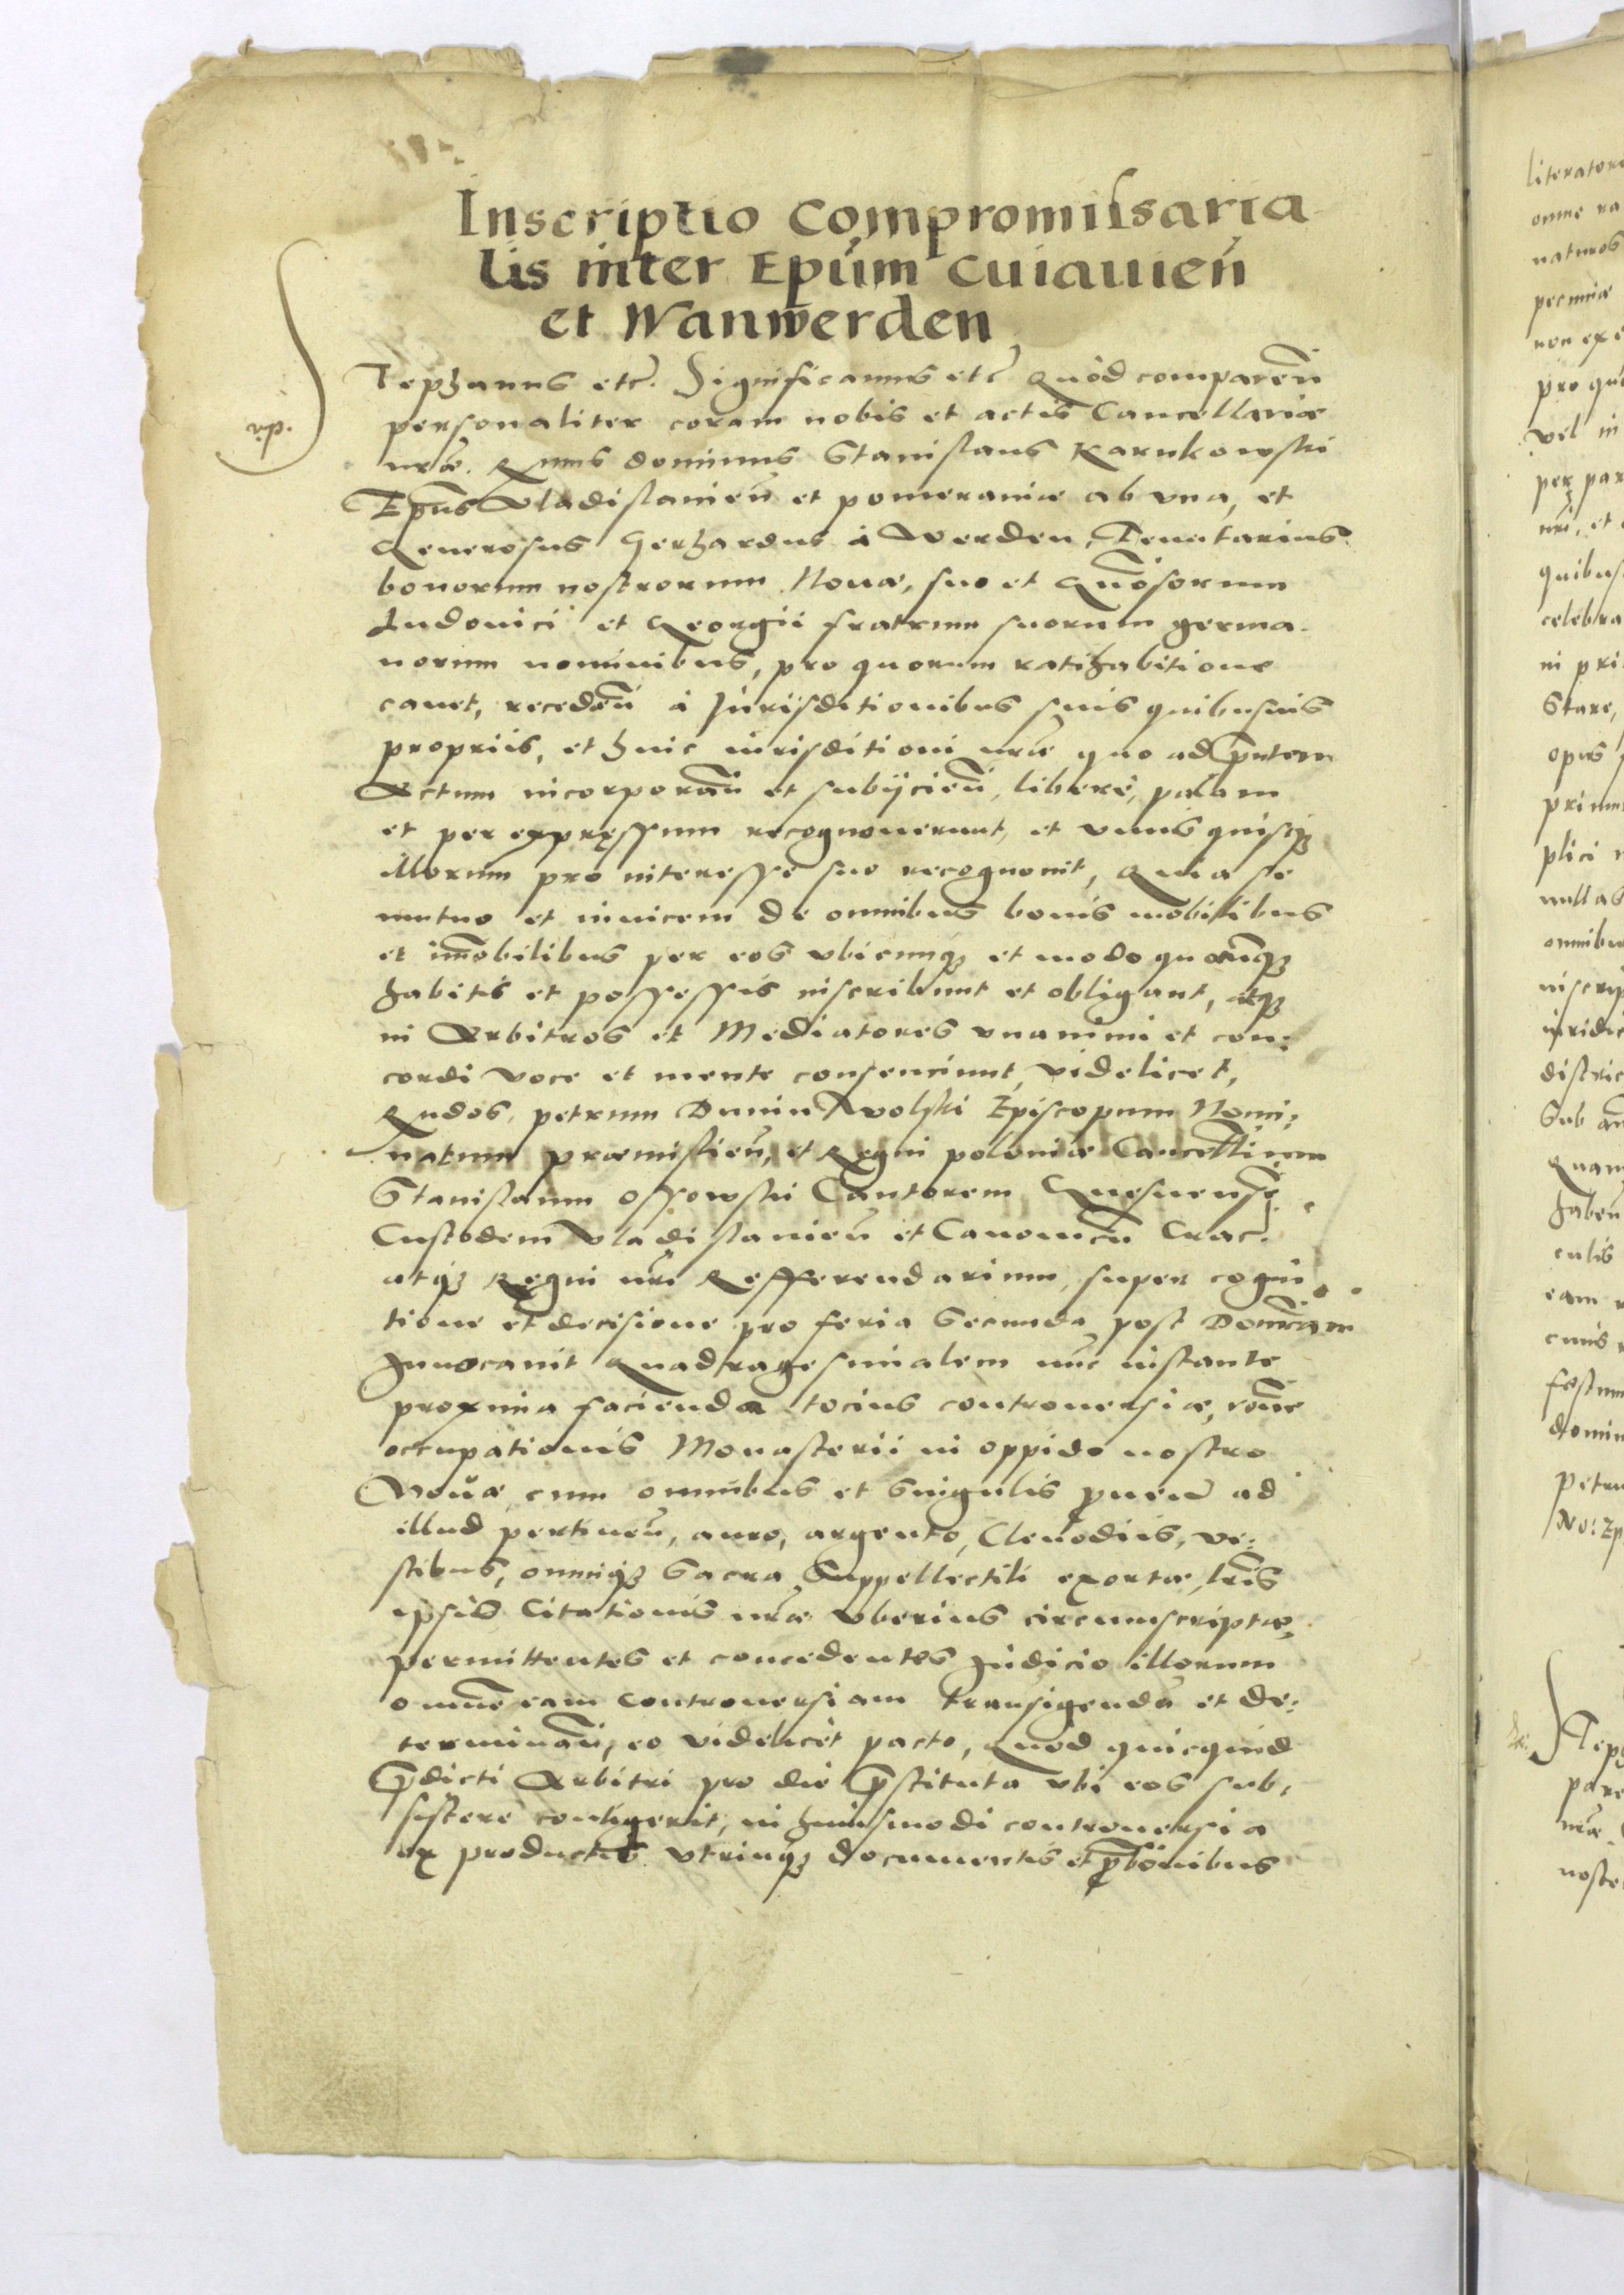 Inscriptio Compromissaria
lis inter Epūm Cuiauieñ
et Wanwerden
STephanus etc. Significamus etc Quòd compareñ
personaliter coram nobis et actis Cancellariæ
nrãe. Rnus dominus Stanislaus Karnkowski
Epūs Vladislauieñ et pomeraniæ ab vna, et
Generosus Gerhardus à Werden, Tenutarius
bonorum nostrorum Nouæ, suo et Gñosorum
Ludouici et Georgii fratrum suorum germa-
norum nominibus, pro quorum ratihabitione
cauet, recedeñ à Jurisditionibus suis quibusuis
propriis, et huic iurisditioni nrãe quo ad pñtem
Actum incorporañ et subijcieñ, liberè, palam
et per expręssum recognouerunt, et vnus quisqз
illorum pro interesse suo recognouit, Quia se
mutuo et inuicem de omnibus bonis mobilibus
et im̃obilibus per eos vbicunqз et modo quocunqз
habitis et possessis inscribunt et obligant, atqз
in Arbitros et Mediatores vnanimi et con:
cordi voce et mente consenciunt, videlicet,
Rndos, petrum Dunin Wolski Episcopum Nomi:
natum præmislieñ, et Regni poloniæ Cancellarium
Stanislaum Ossowski Cantorem Gnesnensẽ
Custodem Vladislauieñ et Canonicũ Crac.
atqз Regni nrĩ Refferendarium, super cogni
tione et decisione pro feria Secunda post Dominicam
Inuocauit Quadragesimalem nũc instante
proxima facienda tocius controuersiæ, rõne
occupationis Monasterii in oppido nostro
Nouæ, cum omnibus et Singulis ad
illud pertineñ, auro, argento, Clenodiis, ve:
stibus, omniqз Sacra Suppellectili exortæ, lrĩs
ipsis Citationis nrãe vberius circumscriptæ,
permittentes et concedentes Judicio illorum
omnẽ eam controuersiam transigendã et de:
terminañ, eo videlicet pacto, Quod quicquid
p̃dicti Arbitri pro die p̃stituta vbi eos sub,
sistere contigerit, in huiusmodi controuersia
ex productis vtrinqз documentis et ꝓbõnibus
literator
omne ra
naturos
pecuniæ
non exe
pro qu
vel in
per par
nrĩ, et
quibus
celebra
in pri
Stare,
opus
prim
plici
nullas
omnibu
inscrip
iuridic
distric
Sub
Quam
habeñ
culis
eam
cuius
festum
domin
petru
No: Ep
STep
pare
nrãe
noste